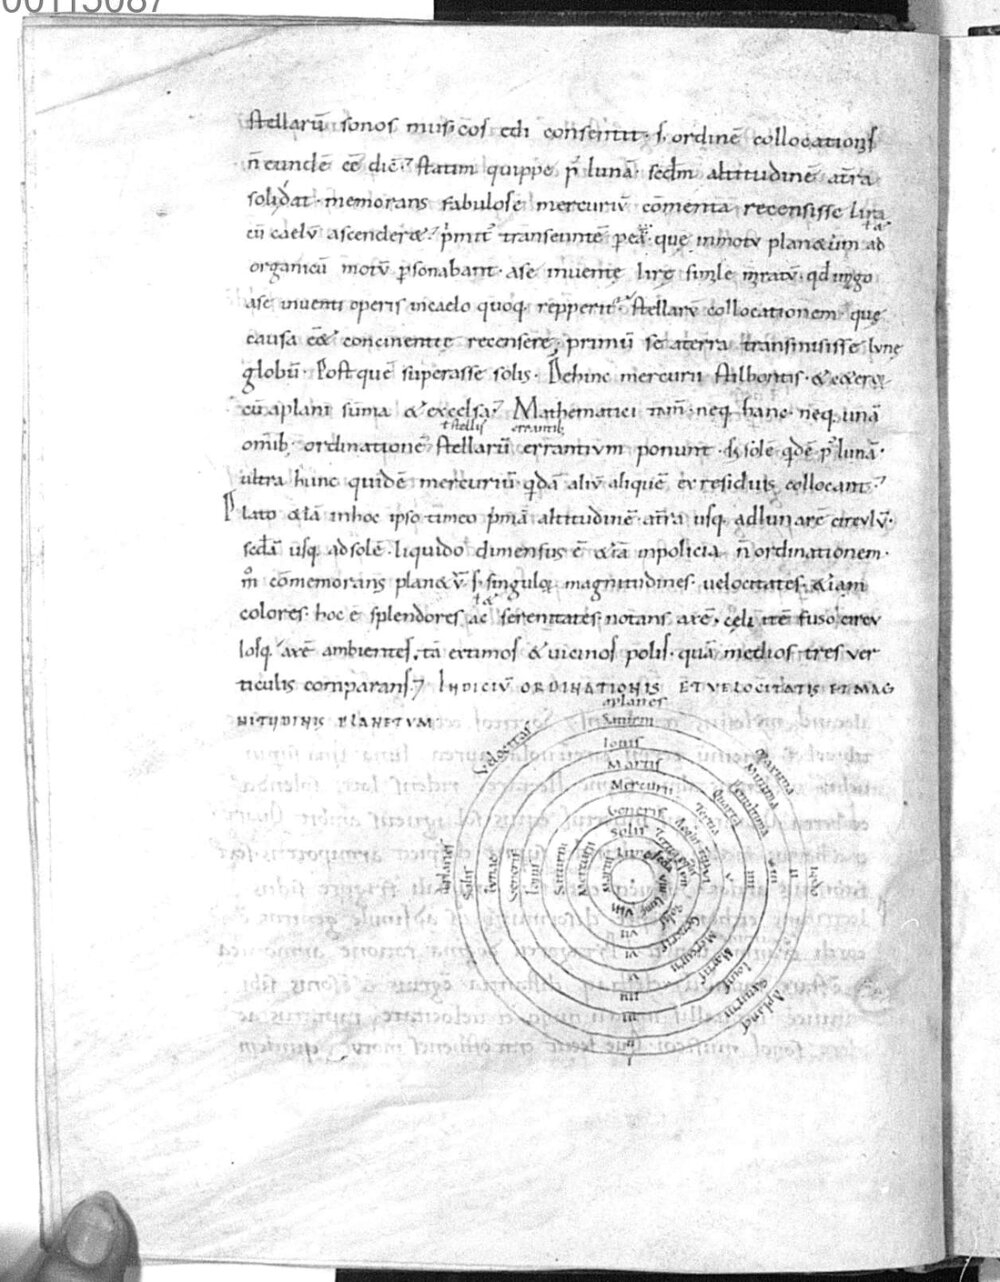 00115087
stellarū sonos musicos edi consentit · s; ordinē collocationis
n̄ eundē eē dn̄t · statim quippe p̄ lunā sedm altitudinē at̄ra
solis dat · memorans fabulose mercuriū cōmenta recensisse lira
cū caelū ascenderet · p̄mit transeuntē pea · que inmotu planetum ad
organicū motū psonabant · ase inuente lire simile miratū · qd imago
ase inuenti operis incaelo quoq; repperit · stellarū collocationem que
causa eēt concinentie recensere; primū se aterra transmisisse lune
globū · Postque superasse solis · Dehinc mercurii stilbontis · & ceterorum
cū aplani suma & excelsa · Mathematici tam̄ neq; hanc neq; unā
omib; ordinationē stellarū errantium ponunt · s; solē qdē p̄ lunā ·
ł stellis errantib;
ultra hunc quidē mercuriū · qdā aliū aliquē ex residuis collocant
Plato &iā inhoc ipso timeo p̄mā altitudinē at̄ra usq; adlunarē circulū ·
sedā usq; adsolē · liquido dimensus ē &iā inpolicia n̄ ordinationem ·
m̊ cōmemorans planetū s; singuloq; magnitudines · uelocitates · &iam
colores · hoc ē splendores ac serenitates notans axē · celi itē fuso circu
ł &
losq; axē ambientes, tā extimos & uicinos polis · quā medios tres ver
ticulis comparans · INDICIV ORDINATIONIS ET VELOCITATIS ET MAG
NITVDINIS PLANETVM
aplanes
Saturni
Iouis
Martis
Mercurii
Veneris
Solis
Lune
Velocitas
Maxima
Tertia
Quarta
aplanes
Solis
Lunae
Veneris
Iouis
Saturni
Mercurii
Martis
Terra
Lune
Solis
Veneris
Mercurii
Martis
Iouis
Saturni
Aplanes
VIII
VII
VI
V
IIII
III
II
I
V
IIII
III
II